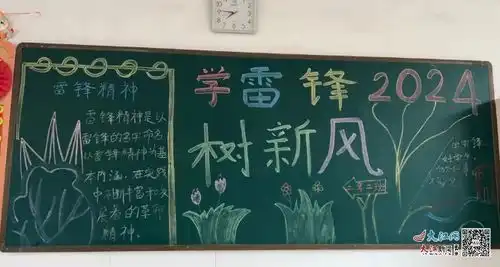 学雷锋 2024
树新风
雷锋精神
雷锋精神是以
雷锋的名字命名
以雷锋精神为基
本内涵，在实践
中不断丰富和发
展着的革命
精神。
二年二班
大江网